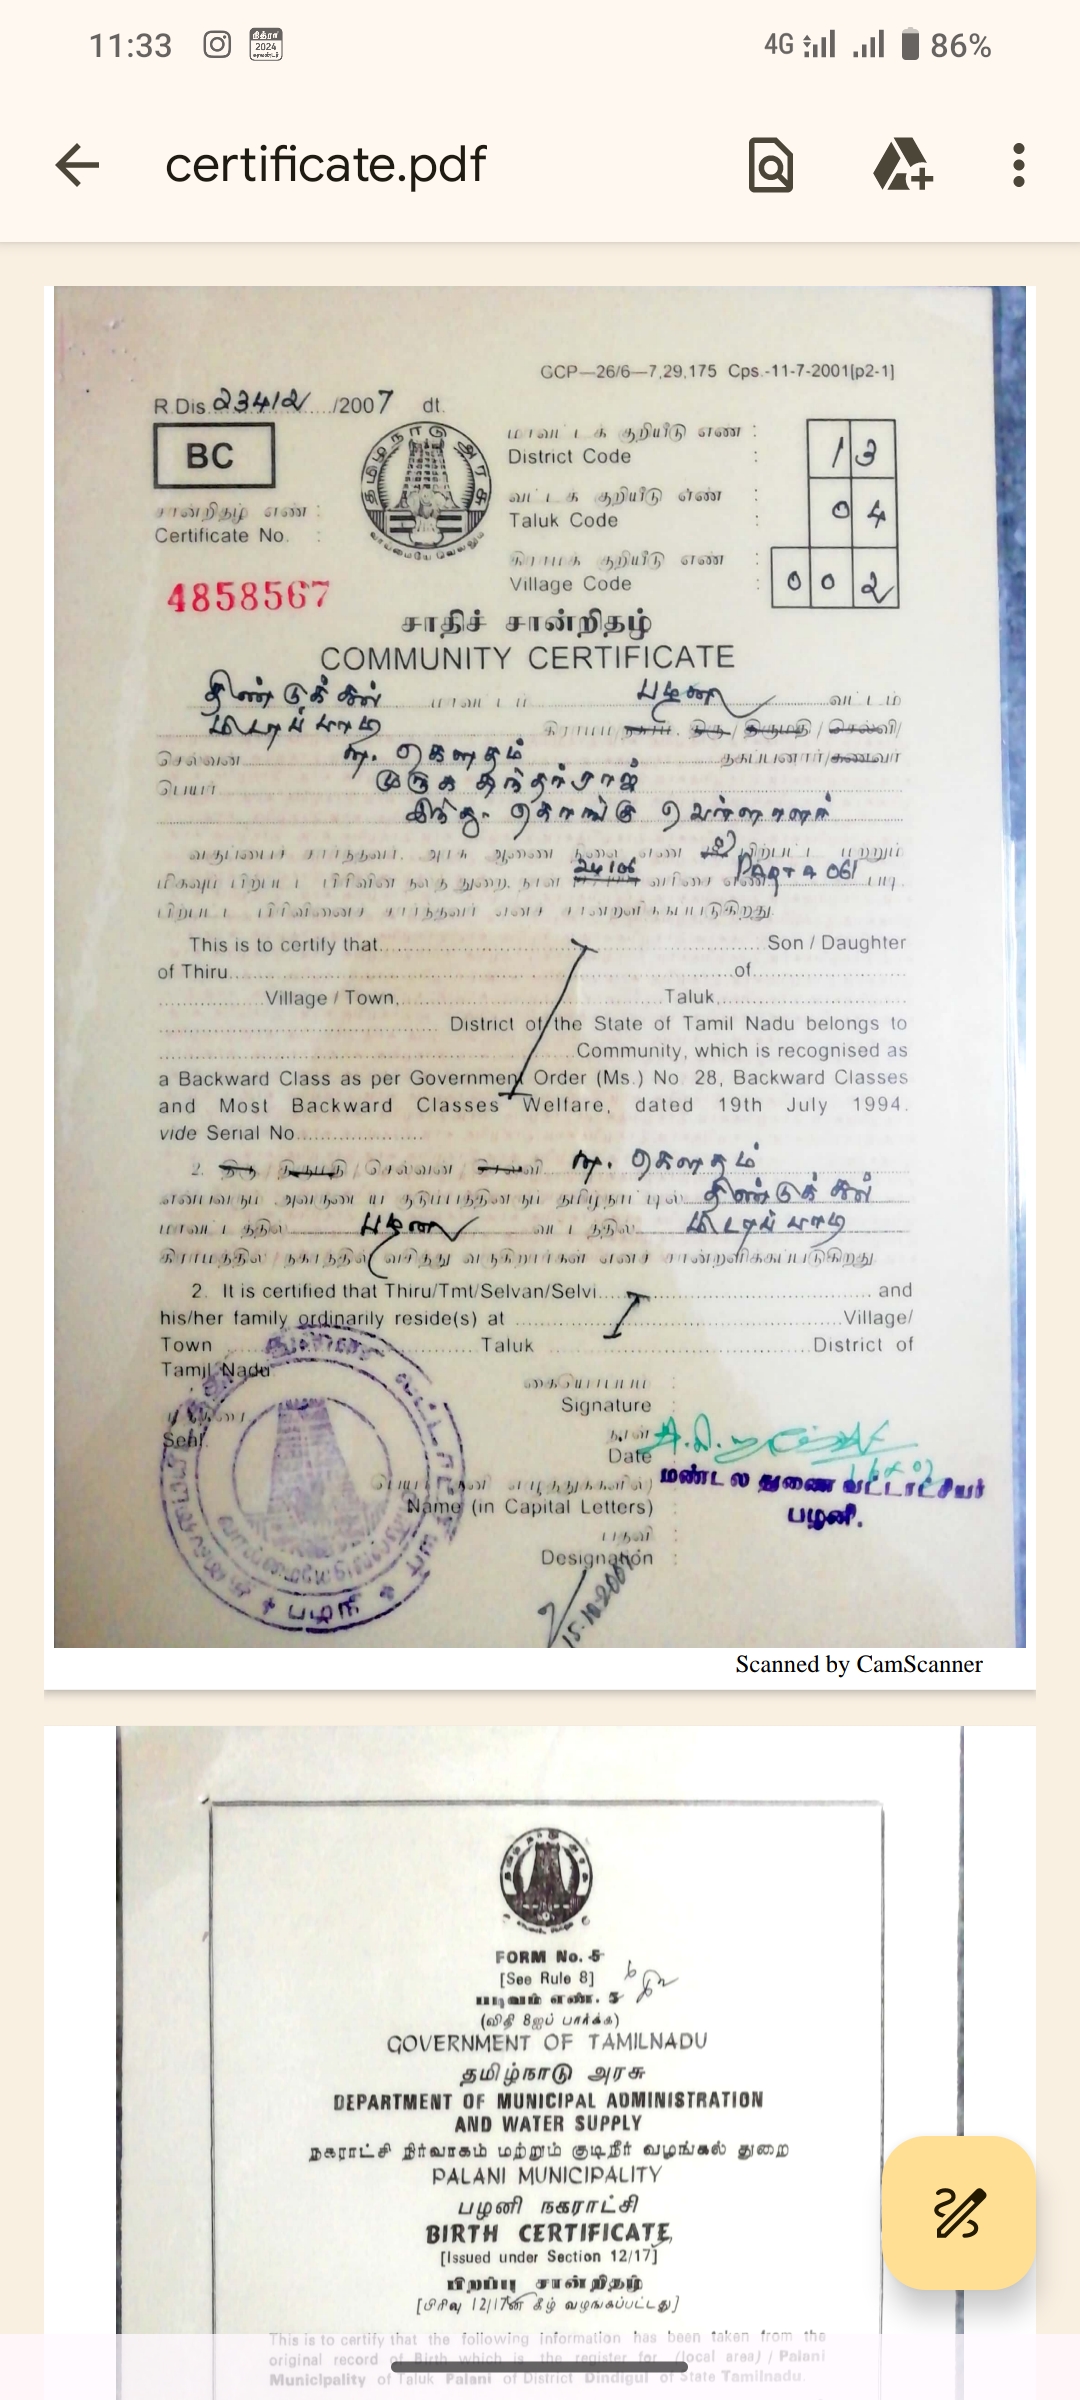 11:33
2024
4G 86%
certificate.pdf
GCP—26/6—7,29,175 Cps.-11-7-2001[p2-1]
R.Dis. 23412 /2007 dt.
BC
தமிழ்நாடு அரசு
வாய்மையே வெல்லும்
மாவட்டக் குறியீடு எண் :
District Code : 13
வட்டக் குறியீடு எண் :
Taluk Code : 04
கிராமக் குறியீடு எண் :
Village Code : 002
சான்றிதழ் எண் :
Certificate No. :
4858567
சாதிச் சான்றிதழ்
COMMUNITY CERTIFICATE
திண்டுக்கல் மாவட்டம் பழனி வட்டம்
கிராமம்/நகரம். திரு/திருமதி/செல்வி/
செல்வன் மு. கௌதம் தகப்பனார்/கணவர்
பெயர்
இந்து- கொங்கு வெள்ளாளர்
வகுப்பைச் சார்ந்தவர். அரசு ஆணை நிலை எண் பிற்பட்ட மற்றும்
மிகவும் பிற்பட்ட பிரிவினர் நலத் துறை, நாள் வரிசை எண் படி
பிற்பட்ட பிரிவினைச் சார்ந்தவர் எனச் சான்றளிக்கப்படுகிறது.
This is to certify that.............Son / Daughter
of Thiru.............of.............
.............Village / Town,.............Taluk,.............
............. District of the State of Tamil Nadu belongs to
.............Community, which is recognised as
a Backward Class as per Government Order (Ms.) No. 28, Backward Classes
and Most Backward Classes Welfare, dated 19th July 1994.
vide Serial No.............
2. திரு / திருமதி / செல்வன் / செல்வி மு. கௌதம்
என்பவரும் அவருடைய குடும்பத்தினரும் தமிழ்நாட்டில் திண்டுக்கல்
மாவட்டத்தில் பழனி வட்டத்தில்
கிராமத்தில் / நகரத்தில் வசித்து வருகிறார்கள் எனச் சான்றளிக்கப்படுகிறது.
2. It is certified that Thiru/Tmt/Selvan/Selvi............. and
his/her family ordinarily reside(s) at .............Village/
Town .............Taluk .............District of
Tamil Nadu
கையொப்பம் :
Signature :
முத்திரை
Seal.
நாள்
Date
Name (in Capital Letters)
மண்டல துணை வட்டாட்சியர்
பழனி.
பதவி :
Designation :
15.10.2007
பழநி
Scanned by CamScanner
FORM No. 5
[See Rule 8]
படிவம் எண். 5
(விதி 8ஐப் பார்க்க)
GOVERNMENT OF TAMILNADU
தமிழ்நாடு அரசு
DEPARTMENT OF MUNICIPAL ADMINISTRATION
AND WATER SUPPLY
நகராட்சி நிர்வாகம் மற்றும் குடிநீர் வழங்கல் துறை
PALANI MUNICIPALITY
பழனி நகராட்சி
BIRTH CERTIFICATE
[Issued under Section 12/17]
பிறப்பு சான்றிதழ்
[பிரிவு 12/17ன் கீழ் வழங்கப்பட்டது]
This is to certify that the following information has been taken from the
original record of Birth which is the register for (local area) / Palani
Municipality of Taluk Palani of District Dindigul of State Tamilnadu.